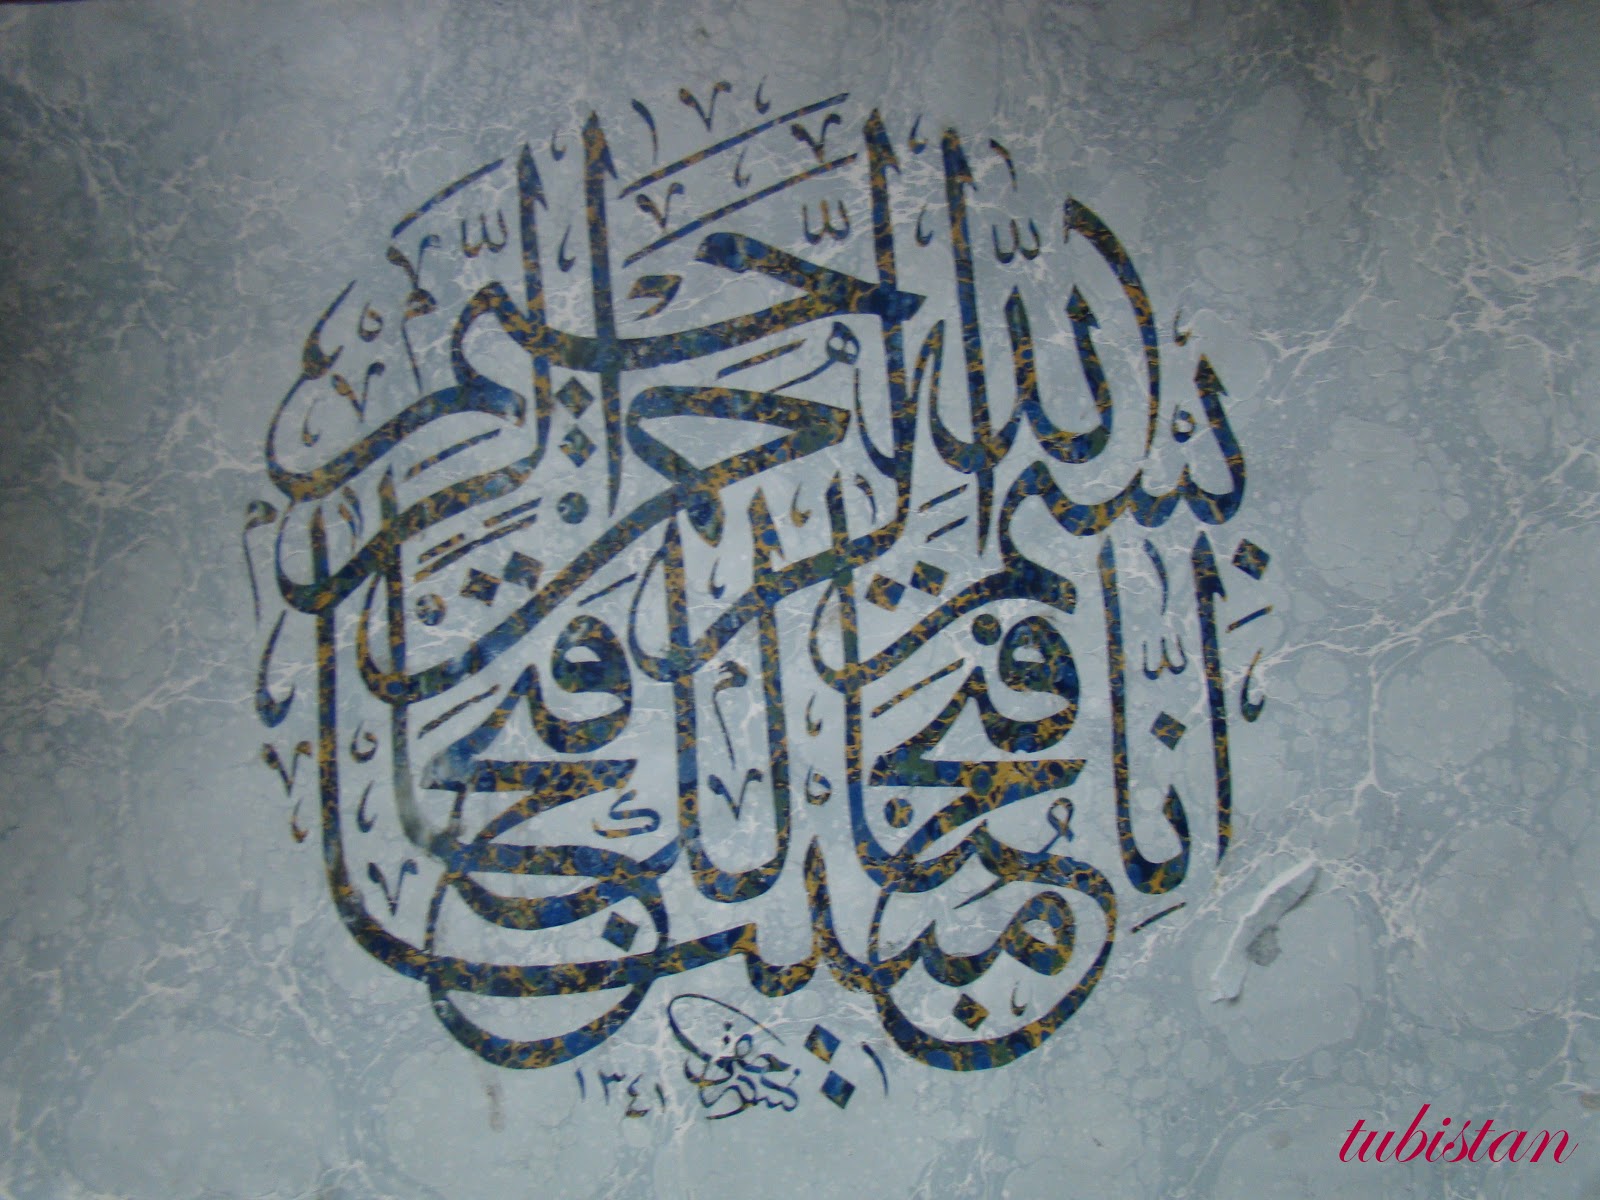 بِسْمِ اللّٰهِ الرَّحْمٰنِ الرَّحِيمِ
إِنَّا فَتَحْنَا لَكَ فَتْحًا مُبِينًا
حقي
١٣٤١
tubistan